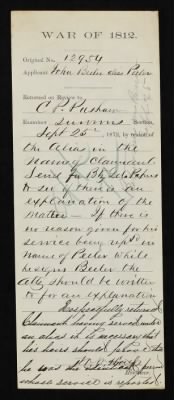 WAR OF 1812.
Original No. 12954
Applicant John Beeler alias Peeler
Returned on Review to
C. P.
Examiner Section,
Sept 25", 1873, by reason of
the Alias in the
name of Claimant
Send for B. L. Papers
to see if there is an
explanation of the
matter — If there is
no reason given for his
service being in
name of Peeler while
he signs Beeler the
atty should be written
to for an explanation
Respectfully returned
Claimant having served under
an alias it is necessary that
he should prove that
he was the identical person
whose service is reported